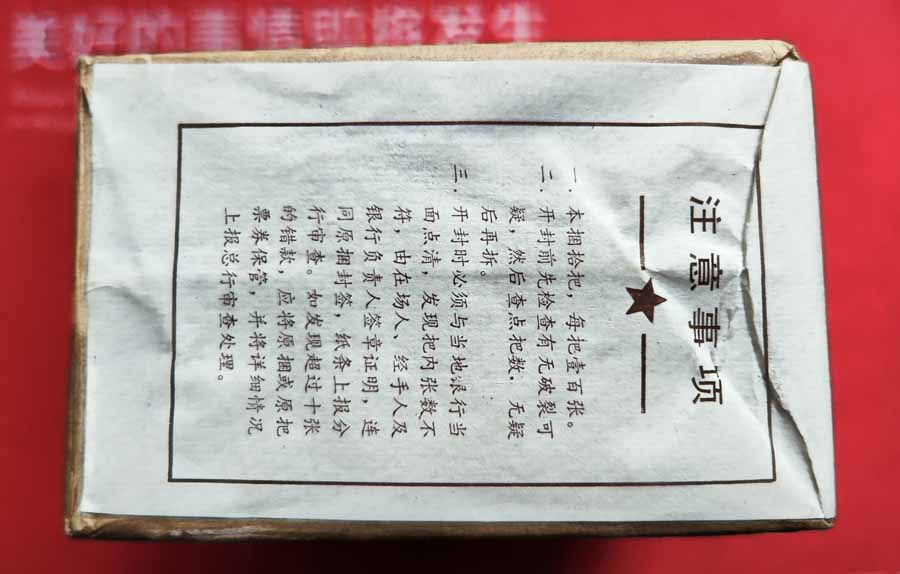 美好的事情即将发生
注意事项
一．本捆拾把，每把壹百张。
二．开封前先检查有无破裂可
疑，然后查点把数，无疑
后再拆。
三．开封时必须与当地银行当
面点清，发现把内张数不
符，由在场人、经手人及
银行负责人签章证明，连
同原捆封签，纸条上报分
行审查。如发现超过十张
的错款，应将原捆或原把
票券保管，并将详细情况
上报总行审查处理。